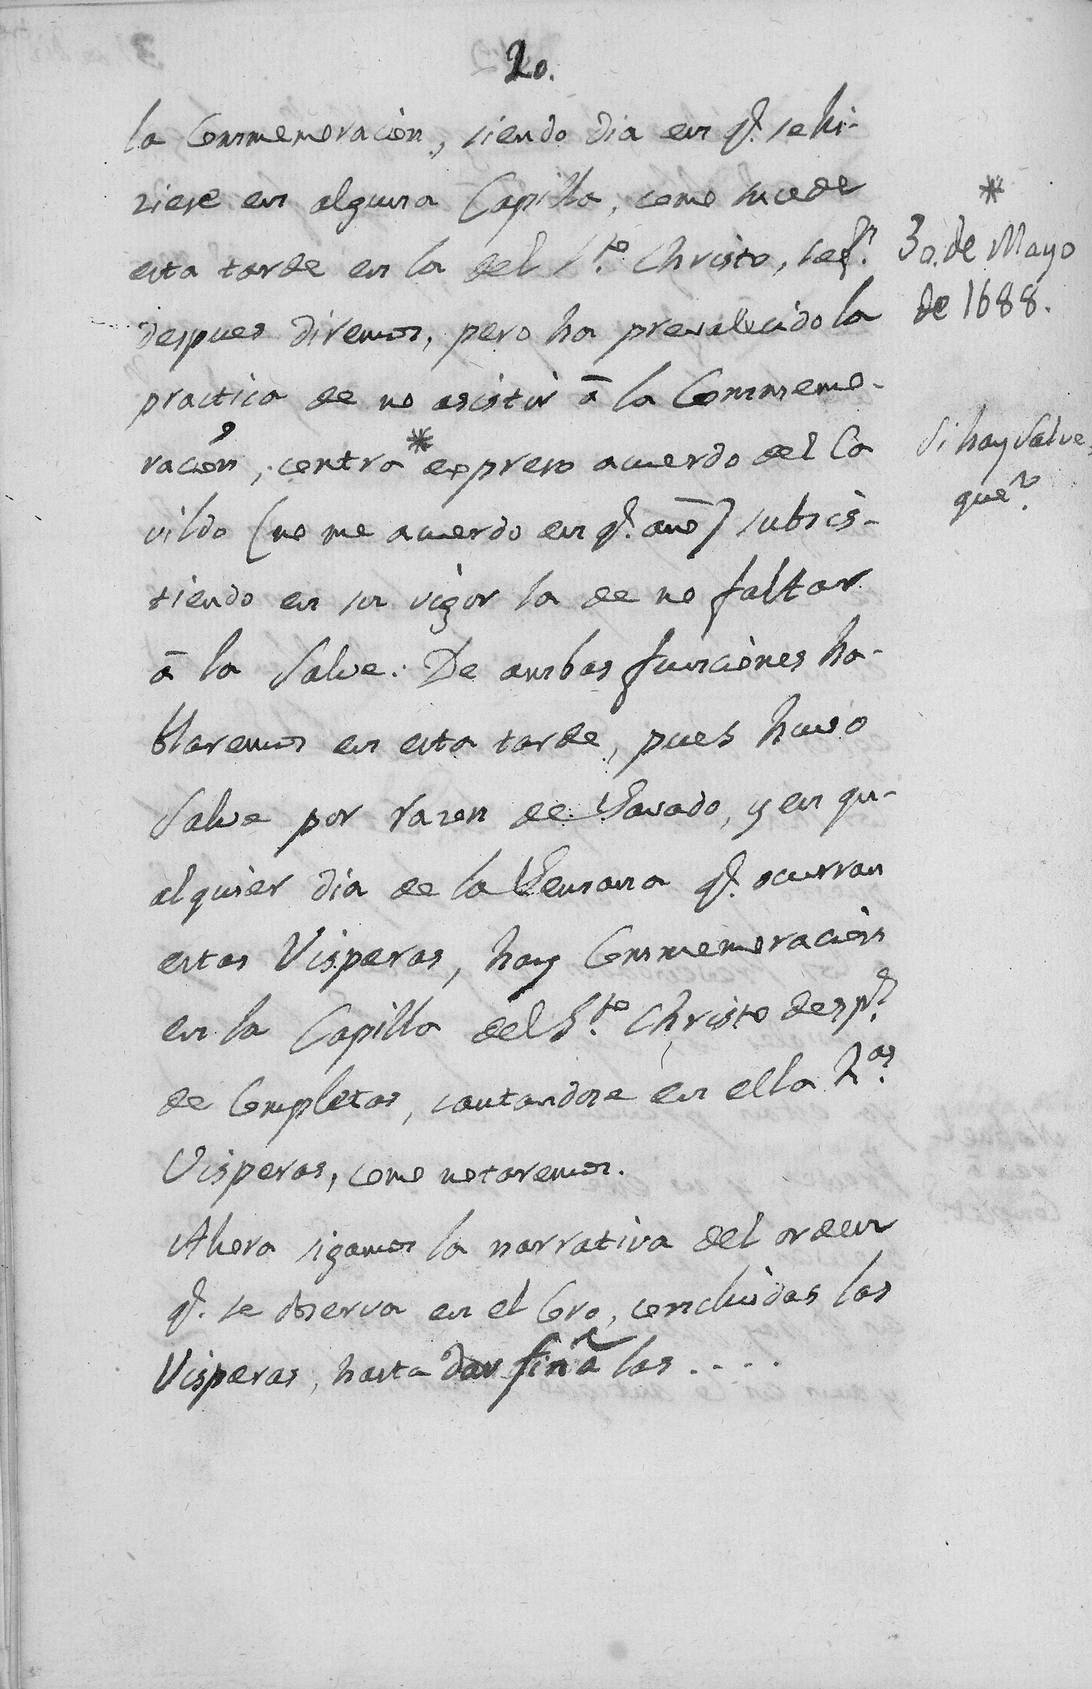 20.
la Conmemoraciòn, siendo dia en q.e se hi-
ziese en alguna Capilla, como sucede
esta tarde en la del S.to Christo, seg.n
despues diremos, pero ha prevalecido la
practica de no asistir â la Conmemo-
raciòn, contra * expreso acuerdo del Ca
vildo (no me acuerdo en q.e año) subsis-
tiendo en su vigor la de no faltar
â la Salve: De ambas funciònes ha-
blaremos en esta tarde, pues huvo
Salve por razon de Savado, y en qu-
alquier dia de la Semana q.e ocurran
estas Visperas, hay Conmemoraciòn
en la Capilla del S.to Christo desp.s
de Completas, cantandose en ella 2.as
Visperas, como notaremos.
Ahora sigamos la narrativa del orden
q.e se observa en el Coro, concluidas las
Visperas, hasta dar fin â las....
*
30. de Mayo
de 1688.
Si hay Salve,